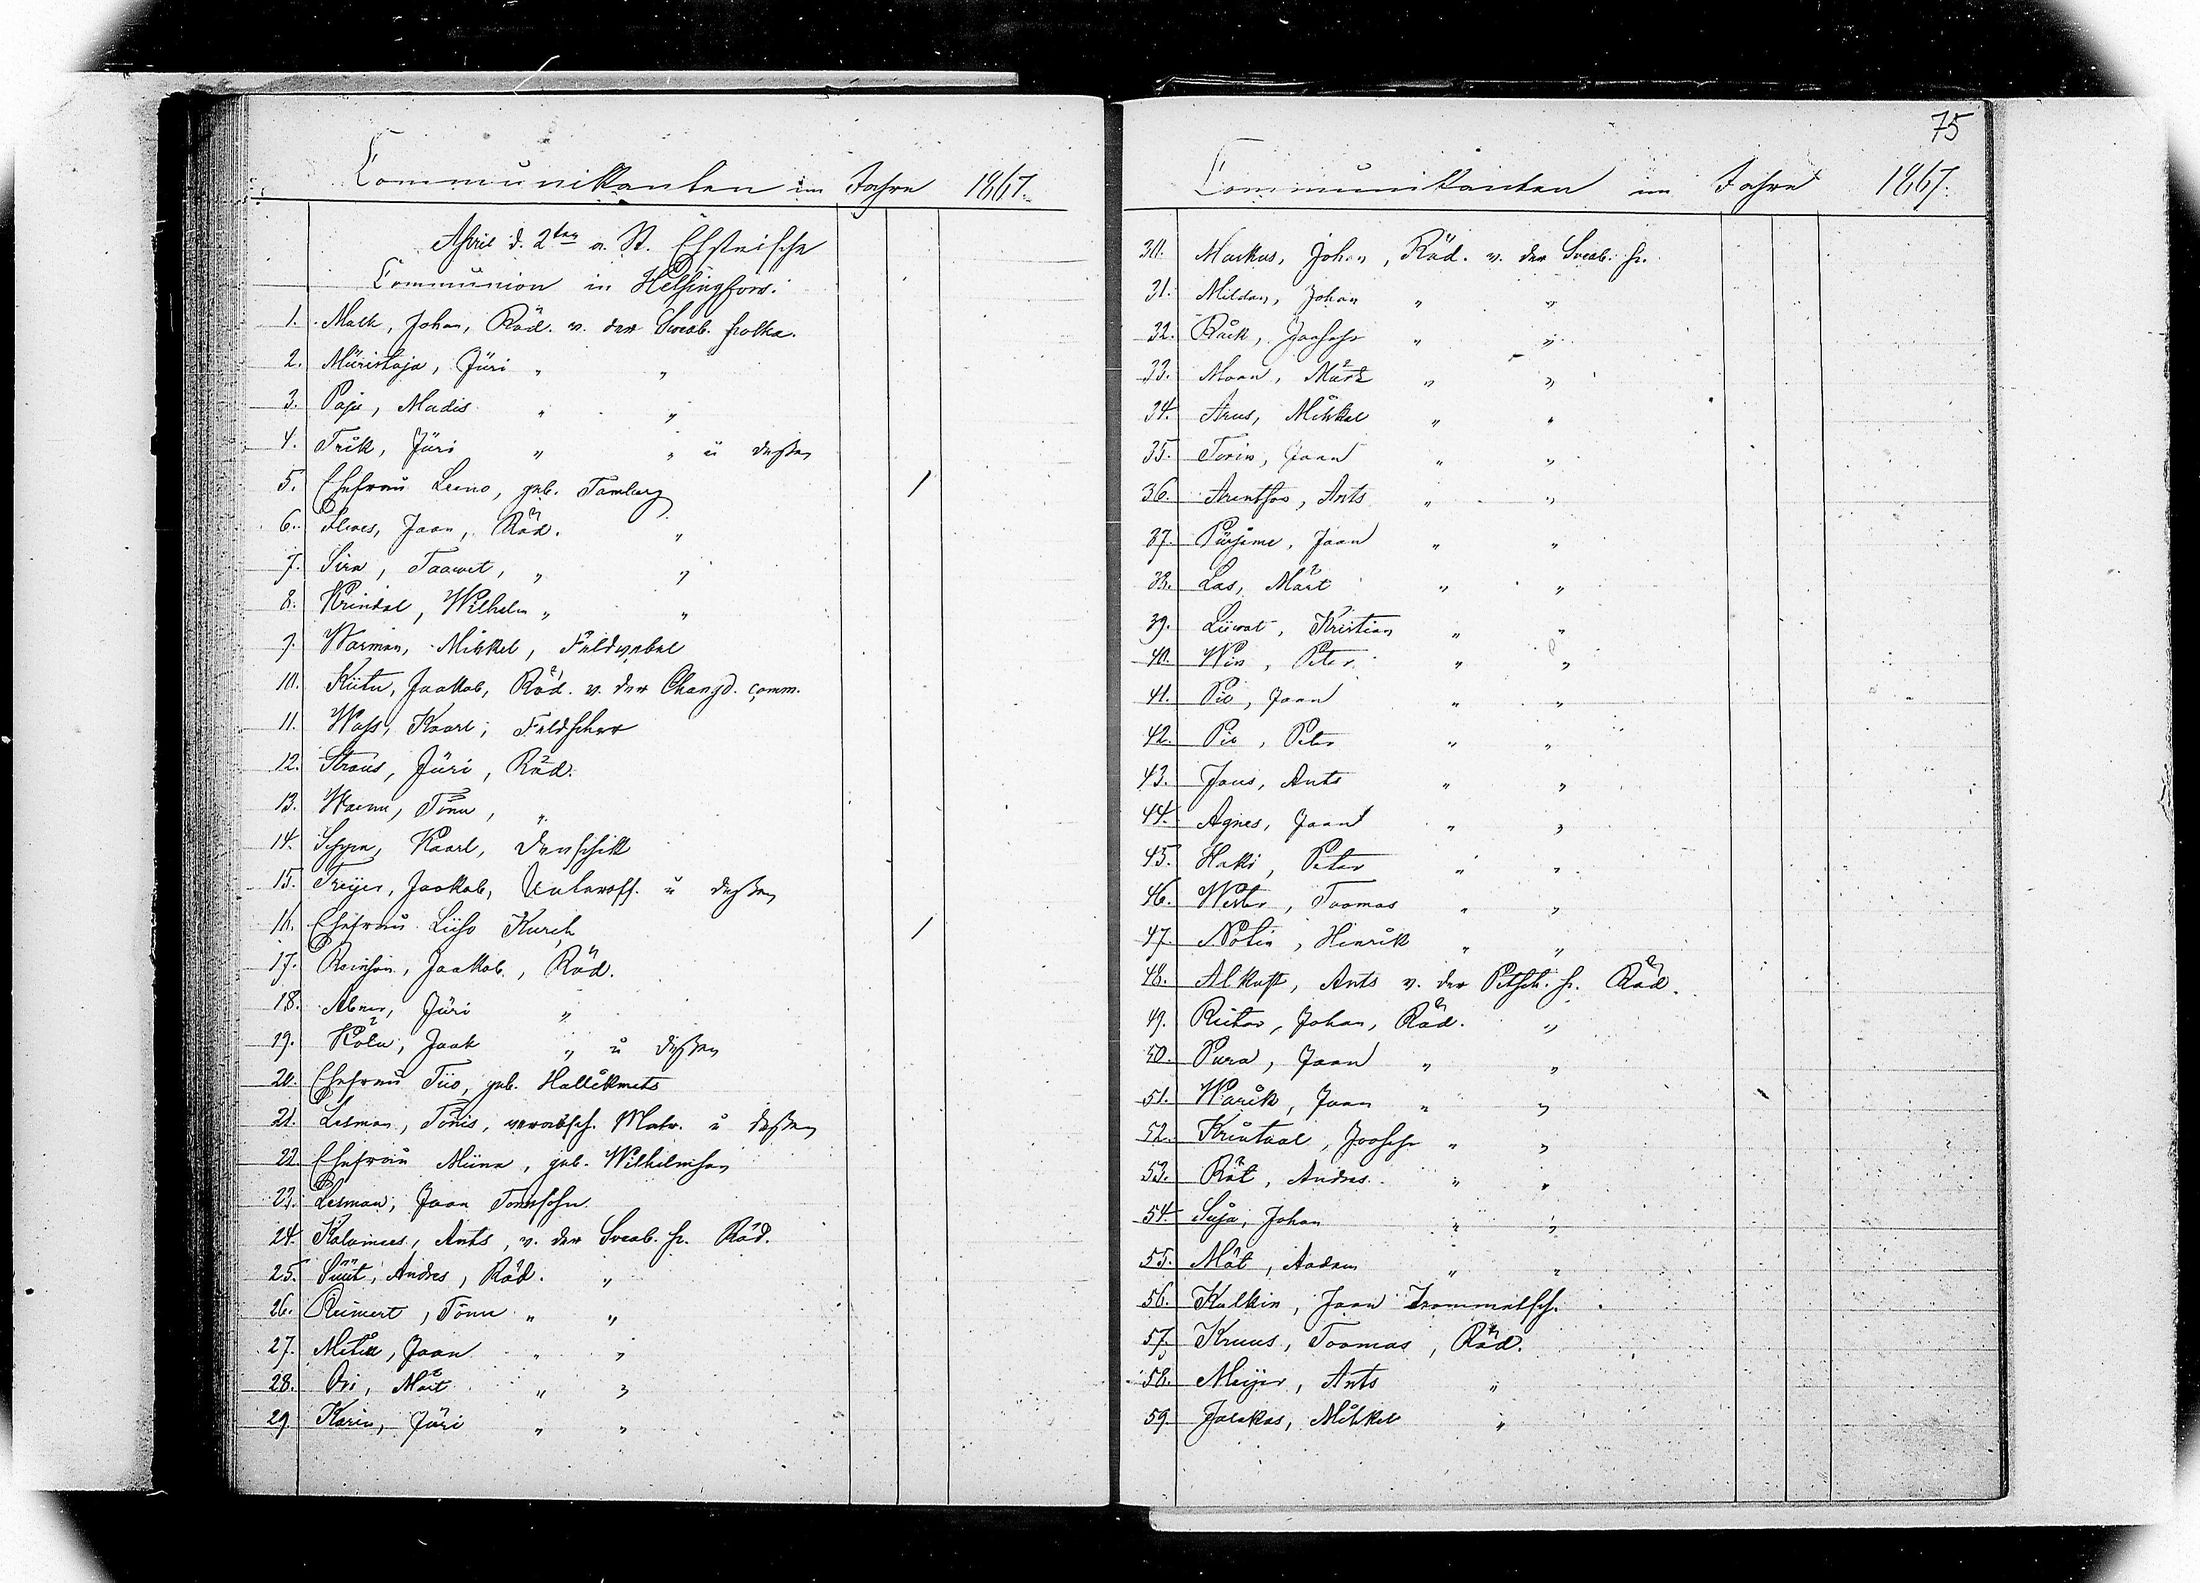 Communikanten im Jahre 1867.
April d. 2ten a. St. Ehstnische
Communion in Helsingfors.
1. Malk, Johan, Räd. v. der Sveab. Halka.
2. Müristaja, Jüri " "
3. Paju, Madis " "
4. Trik, Jüri " " u deßen
5. Ehefrau Leeno, geb. Tamberg /
6. Ilwes, Jaan, Räd. "
7. Sirn, Taawet, " "
8. Krindal, Wilhelm " "
9. Warman, Mihkel, Feldwebel
10. Kütu, Jaakob, Räd. v. der Changd. comm.
11. Waß, Kaarl, Feldscher
12. Straus, Jüri, Räd.
13. Waenu, Tõnu, "
14. Seppa, Kaarl, Denschik
15. Treijer, Jaakob, Unteroff. u deßen
16. Ehefrau Liiso Kursch /
17. Reinson, Jaakob, Räd.
18. Abner, Jüri "
19. Kölu, Jaak " u deßen
20. Ehefrau Tiio, geb. Hallikmets
21. Lesman, Tõnis, verabsch. Matr. u deßen
22. Ehefrau Miina, geb. Wilhelmson
23. Lesman, Jaan Tõnissohn
24. Kalamees, Ants, v. der Sveab. H. Räd.
25. Süüt, Andres, Räd. "
26. Reimert, Tõnu " "
27. Jaan " "
28. Ori, Märt " "
29. Karin, Jüri " "
75
Communikanten im Jahre 1867.
30. Markus, Johan, Räd. v. der Sveab. H.
31. Mildan, Johan " "
32. Rück, Joosep " "
33. Moan, Märt " "
34. Arus, Mihkel " "
35. Torin, Jaan " "
36. Arentson, Ants " "
37. Jaan " "
38. Las, Märt " "
39. Liiwat, Kristian " "
40. Win, Peter " "
41. Pio, Jaan " "
42. Pio, Peter " "
43. Jaus, Ants " "
44. Agnes, Jaan " "
45. Haki, Peter " "
46. Wester, Toomas " "
47. Notin, Hinrik " "
48. Alkust, Ants v. der Petsch. H. Räd.
49. Reitar, Johan, Räd. "
50. Pura, Jaan " "
51. Warik, Jaan " "
52. Krintaal, Joosep " "
53. Rät, Andres " "
54. Suja, Johan " "
55. Mät, Aadam " "
56. Kulkin, Jaan Trommelsch.
57. Kruus, Toomas, Räd.
58. Meijer, Ants "
59. Jalakas, Mihkel "